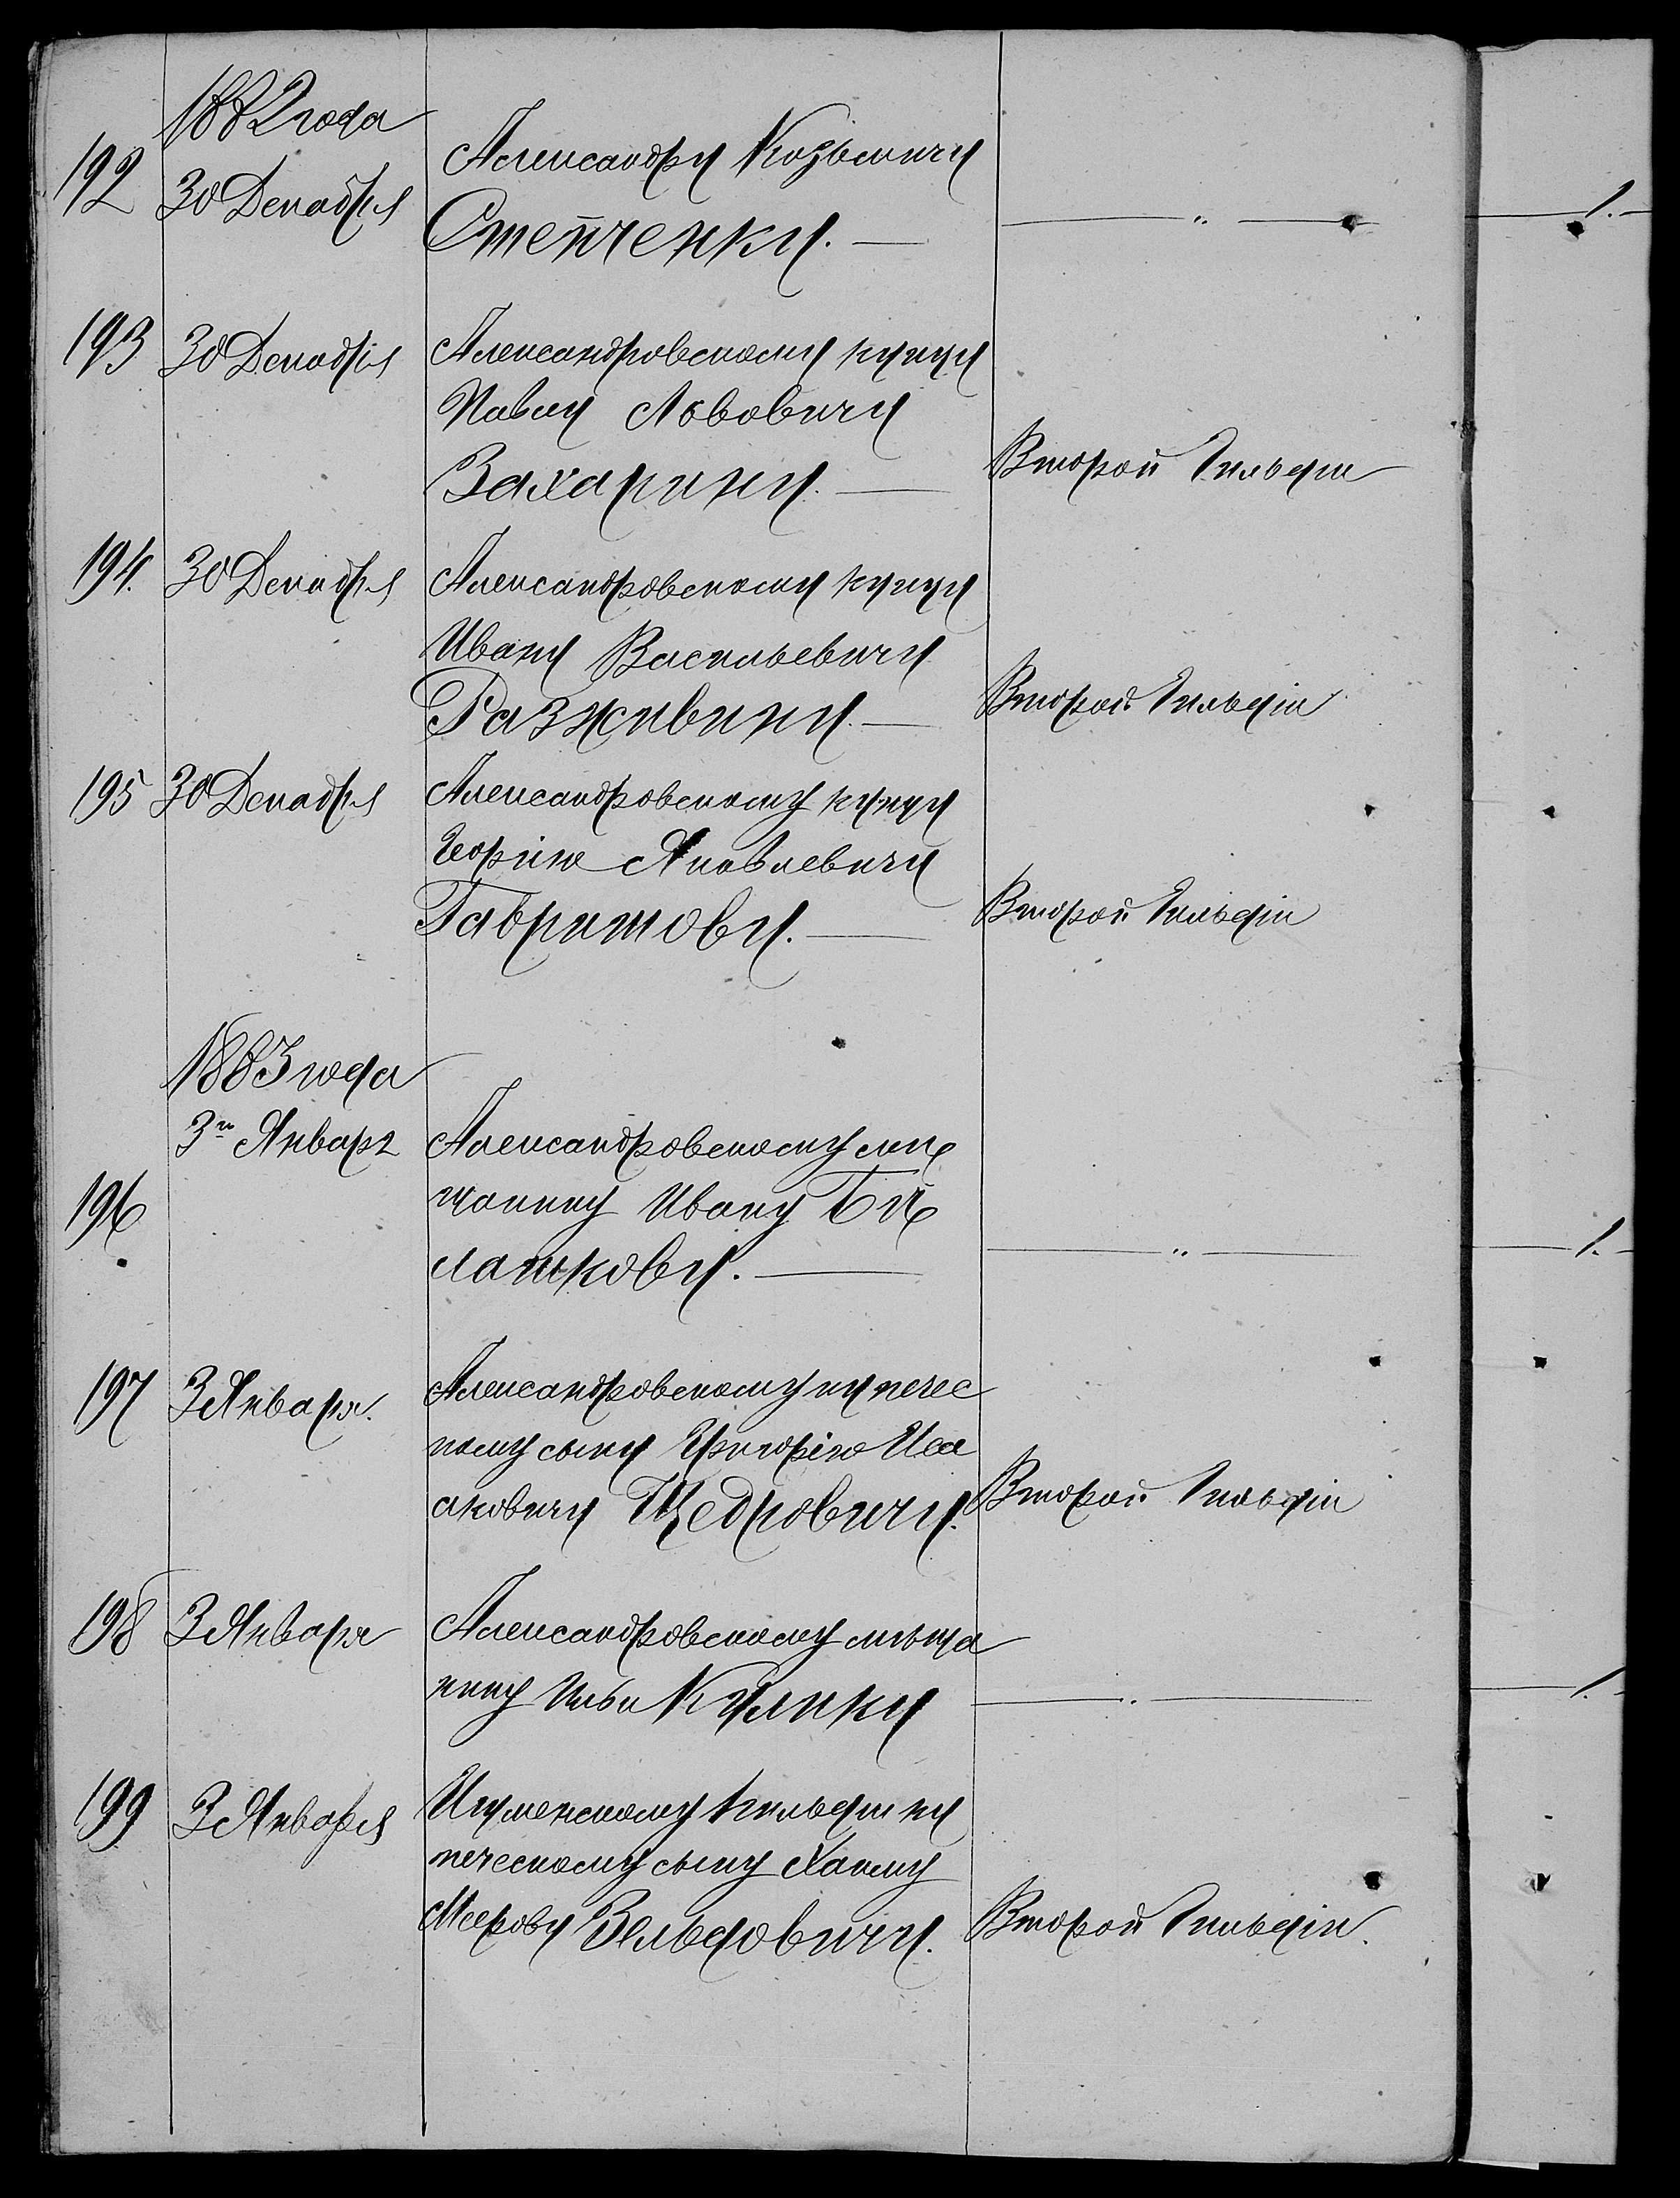 1882 года
192 30 Декабря Александру Козьмичу
Степченку. — — „ — 1.
193 30 Декабря Александровскому купцу
Павлу Львовичу
Захарину. — Второй Гильдіи
194. 30 Декабря Александровскому купцу
Ивану Васильевичу
Разживину. — Второй Гильдіи
195 30 Декабря Александровскому купцу
Георгію Яковлевичу
Гавришову. — Второй Гильдіи
1883 года
3го Января Александровскому мѣ
196 щанину Ивану Бѣ
лашкову. — — „ — 1.
197 3 Января. Александровскому купечес
кому сыну Григорію Иса
аковичу Щедровичу. Второй Гильдіи
198 3 Января Александровскому мѣща
нину Ильи Кулику — . — 1.
199 3 Января Игуменскому Гильдіи ку
печескому сыну Хаиму
Меерову Зельдовичу. Второй Гильдіи.